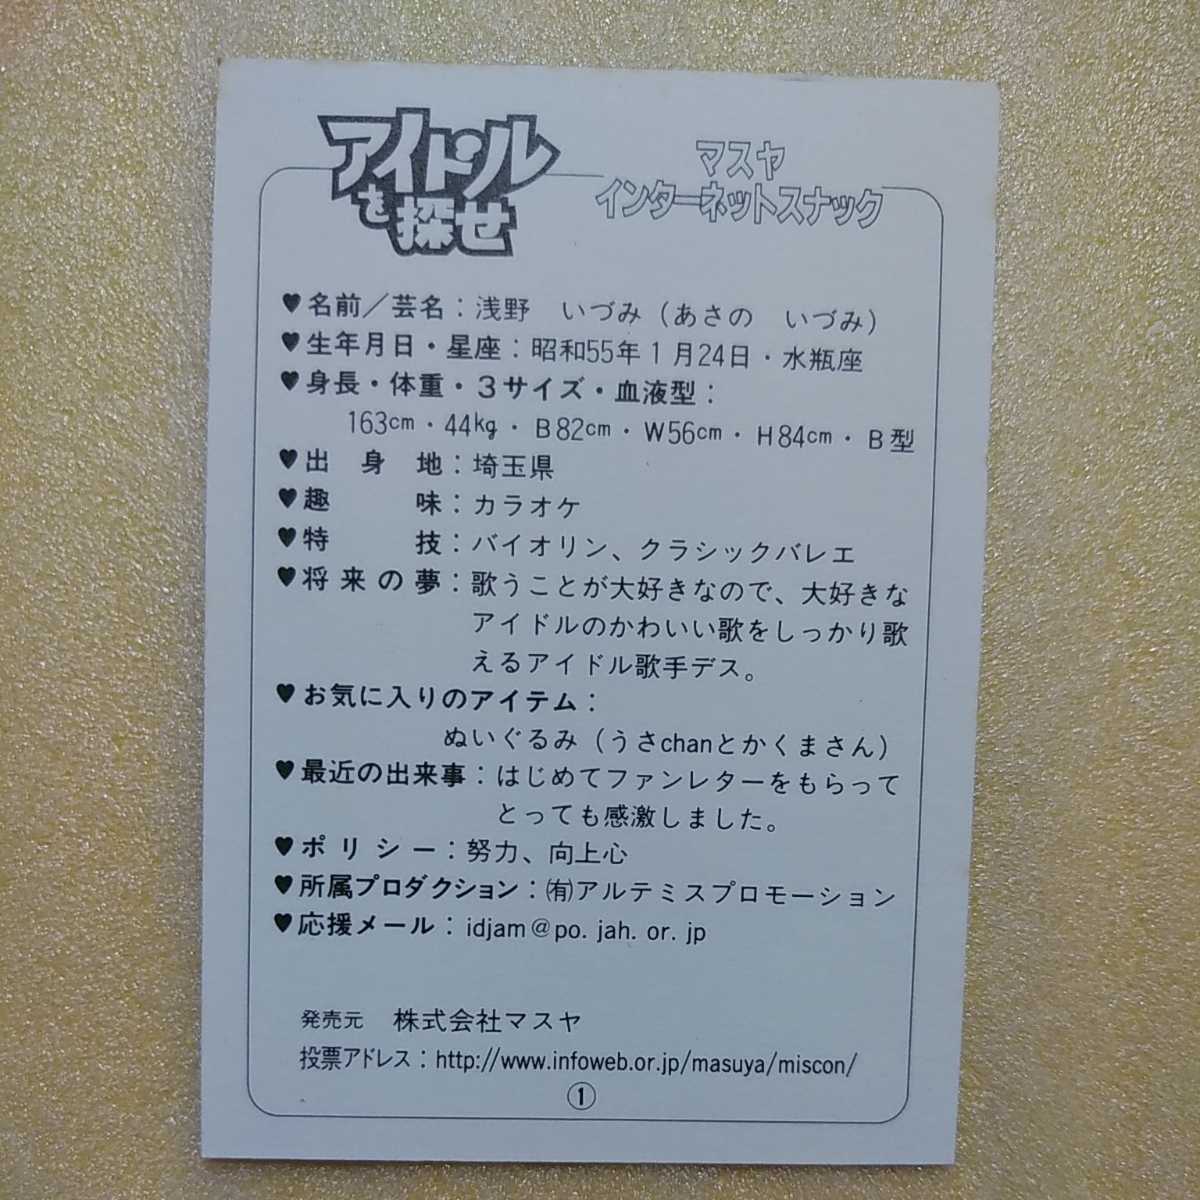 アイドル
を探せ
マスヤ
インターネットスナック
♥名前／芸名：浅野　いづみ（あさの　いづみ）
♥生年月日・星座：昭和55年1月24日・水瓶座
♥身長・体重・3サイズ・血液型：
163cm・44kg・B82cm・W56cm・H84cm・B型
♥出身地：埼玉県
♥趣味：カラオケ
♥特技：バイオリン、クラシックバレエ
♥将来の夢：歌うことが大好きなので、大好きな
アイドルのかわいい歌をしっかり歌
えるアイドル歌手デス。
♥お気に入りのアイテム：
ぬいぐるみ（うさchanとかくまさん）
♥最近の出来事：はじめてファンレターをもらって
とっても感激しました。
♥ポリシー：努力、向上心
♥所属プロダクション：㈲アルテミスプロモーション
♥応援メール：idjam@po. jah. or. jp
発売元　株式会社マスヤ
投票アドレス：http://www.infoweb.or.jp/masuya/miscon/
①